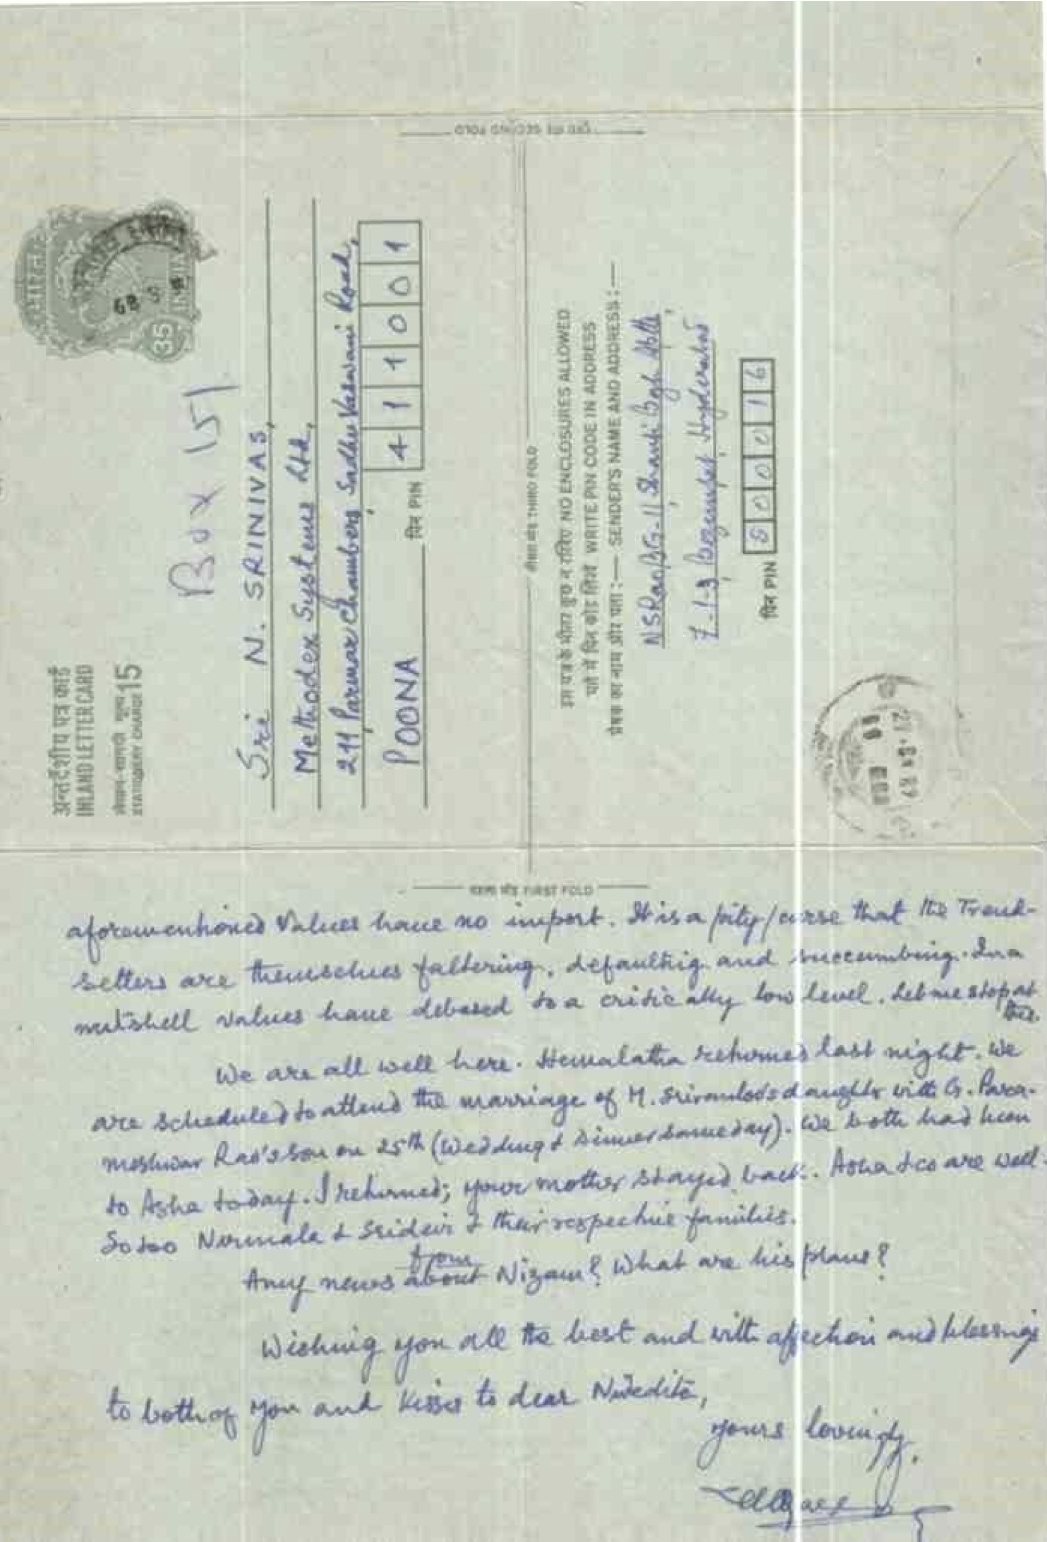 दूसरा मोड़ SECOND FOLD
भारत
35
INDIA
Box 151
अन्तर्देशीय पत्र कार्ड
INLAND LETTER CARD
लेखन-सामग्री मूल्य 15
STATIONERY CHARGE
Sri N. SRINIVAS,
Methodex Systems Ltd,
211 Parmar Chambers, Sadhu Vaswani Road,
POONA
पिन PIN 411001
तीसरा मोड़ THIRD FOLD
इस पत्र के भीतर कुछ न रखिए NO ENCLOSURES ALLOWED
पते में पिन कोड लिखें WRITE PIN CODE IN ADDRESS
प्रेषक का नाम और पता :— SENDER'S NAME AND ADDRESS :—
NSRao BG-11 Shanti Bagh Apts,
7-1-3 Begumpet, Hyderabad
पिन PIN 500016
पहला मोड़ FIRST FOLD
aforementioned values have no import. It is a pity/curse that the Trend-
setters are themselves faltering, defaulting and succumbing. In a
nutshell values have debased to a critically low level. Let me stop at
this.
We are all well here. Hemalatha returned last night. We
are scheduled to attend the marriage of M. Sriramloo's daughter with G. Para-
meshwar Rao's son on 25th (Wedding & Dinner same day). We both had been
to Asha today. I returned; your mother stayed back. Asha & co are well.
So too Nirmala & Sridevi & their respective families.
Any news about from Nizam? What are his plans?
Wishing you all the best and with affection and blessings
to both of you and kisses to dear Nivedita,
yours lovingly,